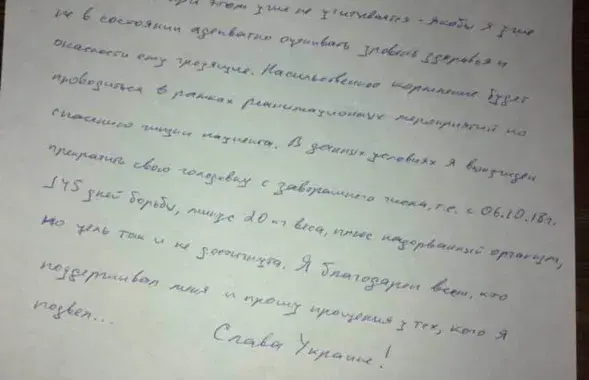 при этом уже не учитывается - якобы я уже
не в состоянии адекватно оценивать уровень здоровья и
опасности ему грозящие. Насильственное кормление будет
проводиться в рамках реанимационных мероприятий по
спасению жизни пациента. В данных условиях я вынужден
прекратить свою голодовку с завтрашнего числа, т.е. с 06.10.18г.
145 дней борьбы, минус 20 кг веса, плюс надорванный организм,
но цель так и не достигнута. Я благодарен всем, кто
поддерживал меня и прошу прощения у тех, кого я
подвел...
Слава Украине!